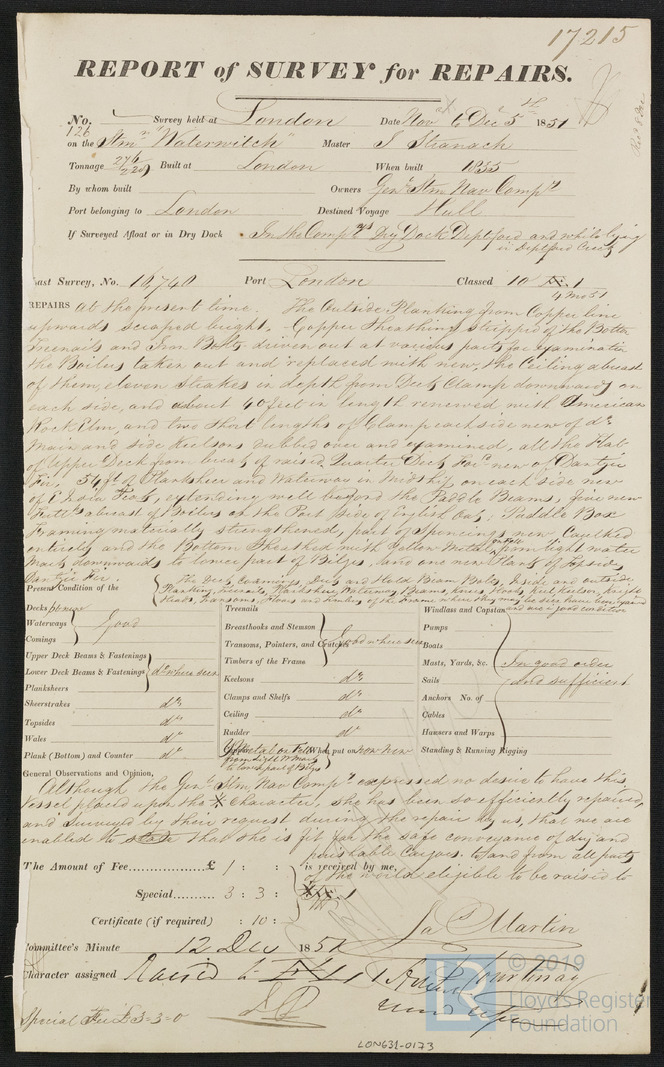 17215
REPORT of SURVEY for REPAIRS.
No. 126 Survey held at London Date Nov to Dec 5th 1851
on the Stmr "Waterwitch" Master J Stranach
Tonnage 276 220 Built at London When built 1835
By whom built Owners Genl Stm Nav Compy
Port belonging to London Destined Voyage Hull
If Surveyed Afloat or in Dry Dock In the Compys Dry Dock Deptford and while lying
in Deptford Creek
Last Survey, No. 16,740 Port London Classed 10 1
4 Mo 51
REPAIRS at the present time. The Outside Planking from Copper line
upwards scraped bright. Copper Sheathing stripped of the Bottom
Treenails and Iron Bolts driven out at various parts for examination
the Boilers taken out and replaced with new, the Ceiling abreast
of them, eleven strakes in depth from Deck Clamp downwards on
each side, and about 40 feet in length renewed with American
Rock Elm, and two short lengths of Clamp each side new of do
Main and side Keelsons dubbed over and examined, all the Flat
of Upper Deck from break of raised Quarter Deck Ford new of Dantzic
Fir, 54 ft of Planksheer and Waterway in Midship on each side new
of E India Teak, extending well beyond the Paddle Beams, five new
abreast of Boilers on the Port side of English Oak, Paddle Box
Framing materially strengthened, part of Sponcings new, Caulked
entirely and the Bottom Sheathed with Yellow Metal on Felt from light water
Mark downwards to lower part of Bilges, and one new Plank of Topside,
Dantzic Fir.
Present Condition of the The Deck, Coamings, Deck and Hold Beam Bolts, Inside and outside
Planking, treenails, Planksheer, Waterway, Beams, Knees, Hooks, Keel, Keelson, Knight
Heads, Transoms, Floors and timbers of the Frame where they may be seen have been examd
and are in good condition
Decks pt new Treenails Windlass and Capstan
Waterways Good Breasthooks and Stemson Pumps
Comings Transoms, Pointers, and Crutches Good where seen Boats
Upper Deck Beams & Fastenings Timbers of the Frame Masts, Yards, &c. In good order
Lower Deck Beams & Fastenings do where seen Keelsons do Sails and sufficient
Planksheers Clamps and Shelfs do Anchors No. of
Sheerstrakes do Ceiling do Cables
Topsides do Rudder do Hausers and Warps
Wales do Y Metal on Felt When put on now new Standing & Running Rigging
Plank (Bottom) and Counter do from light W Mark
to lower part of Bilge
General Observations and Opinion,
Although the Genl Stm Nav Compy expressed no desire to have this
Vessel placed upon the Character, she has been so efficiently repaired,
and surveyed by their request during the repair by us, that we are
enabled to state that she is fit for the safe conveyance of dry and
perishable Cargoes to and from all parts
of the world eligible to be raised to
The Amount of Fee £ 1 : : is received by me,
Special 3 : 3 :
Certificate (if required) : 10 :
Jas Martin
Committee's Minute 12 Dec 1851
Character assigned Raised to
J Courtinay
Special Fee £3-3-0
© 2019
Lloyd's Register
Foundation
LON631-0173